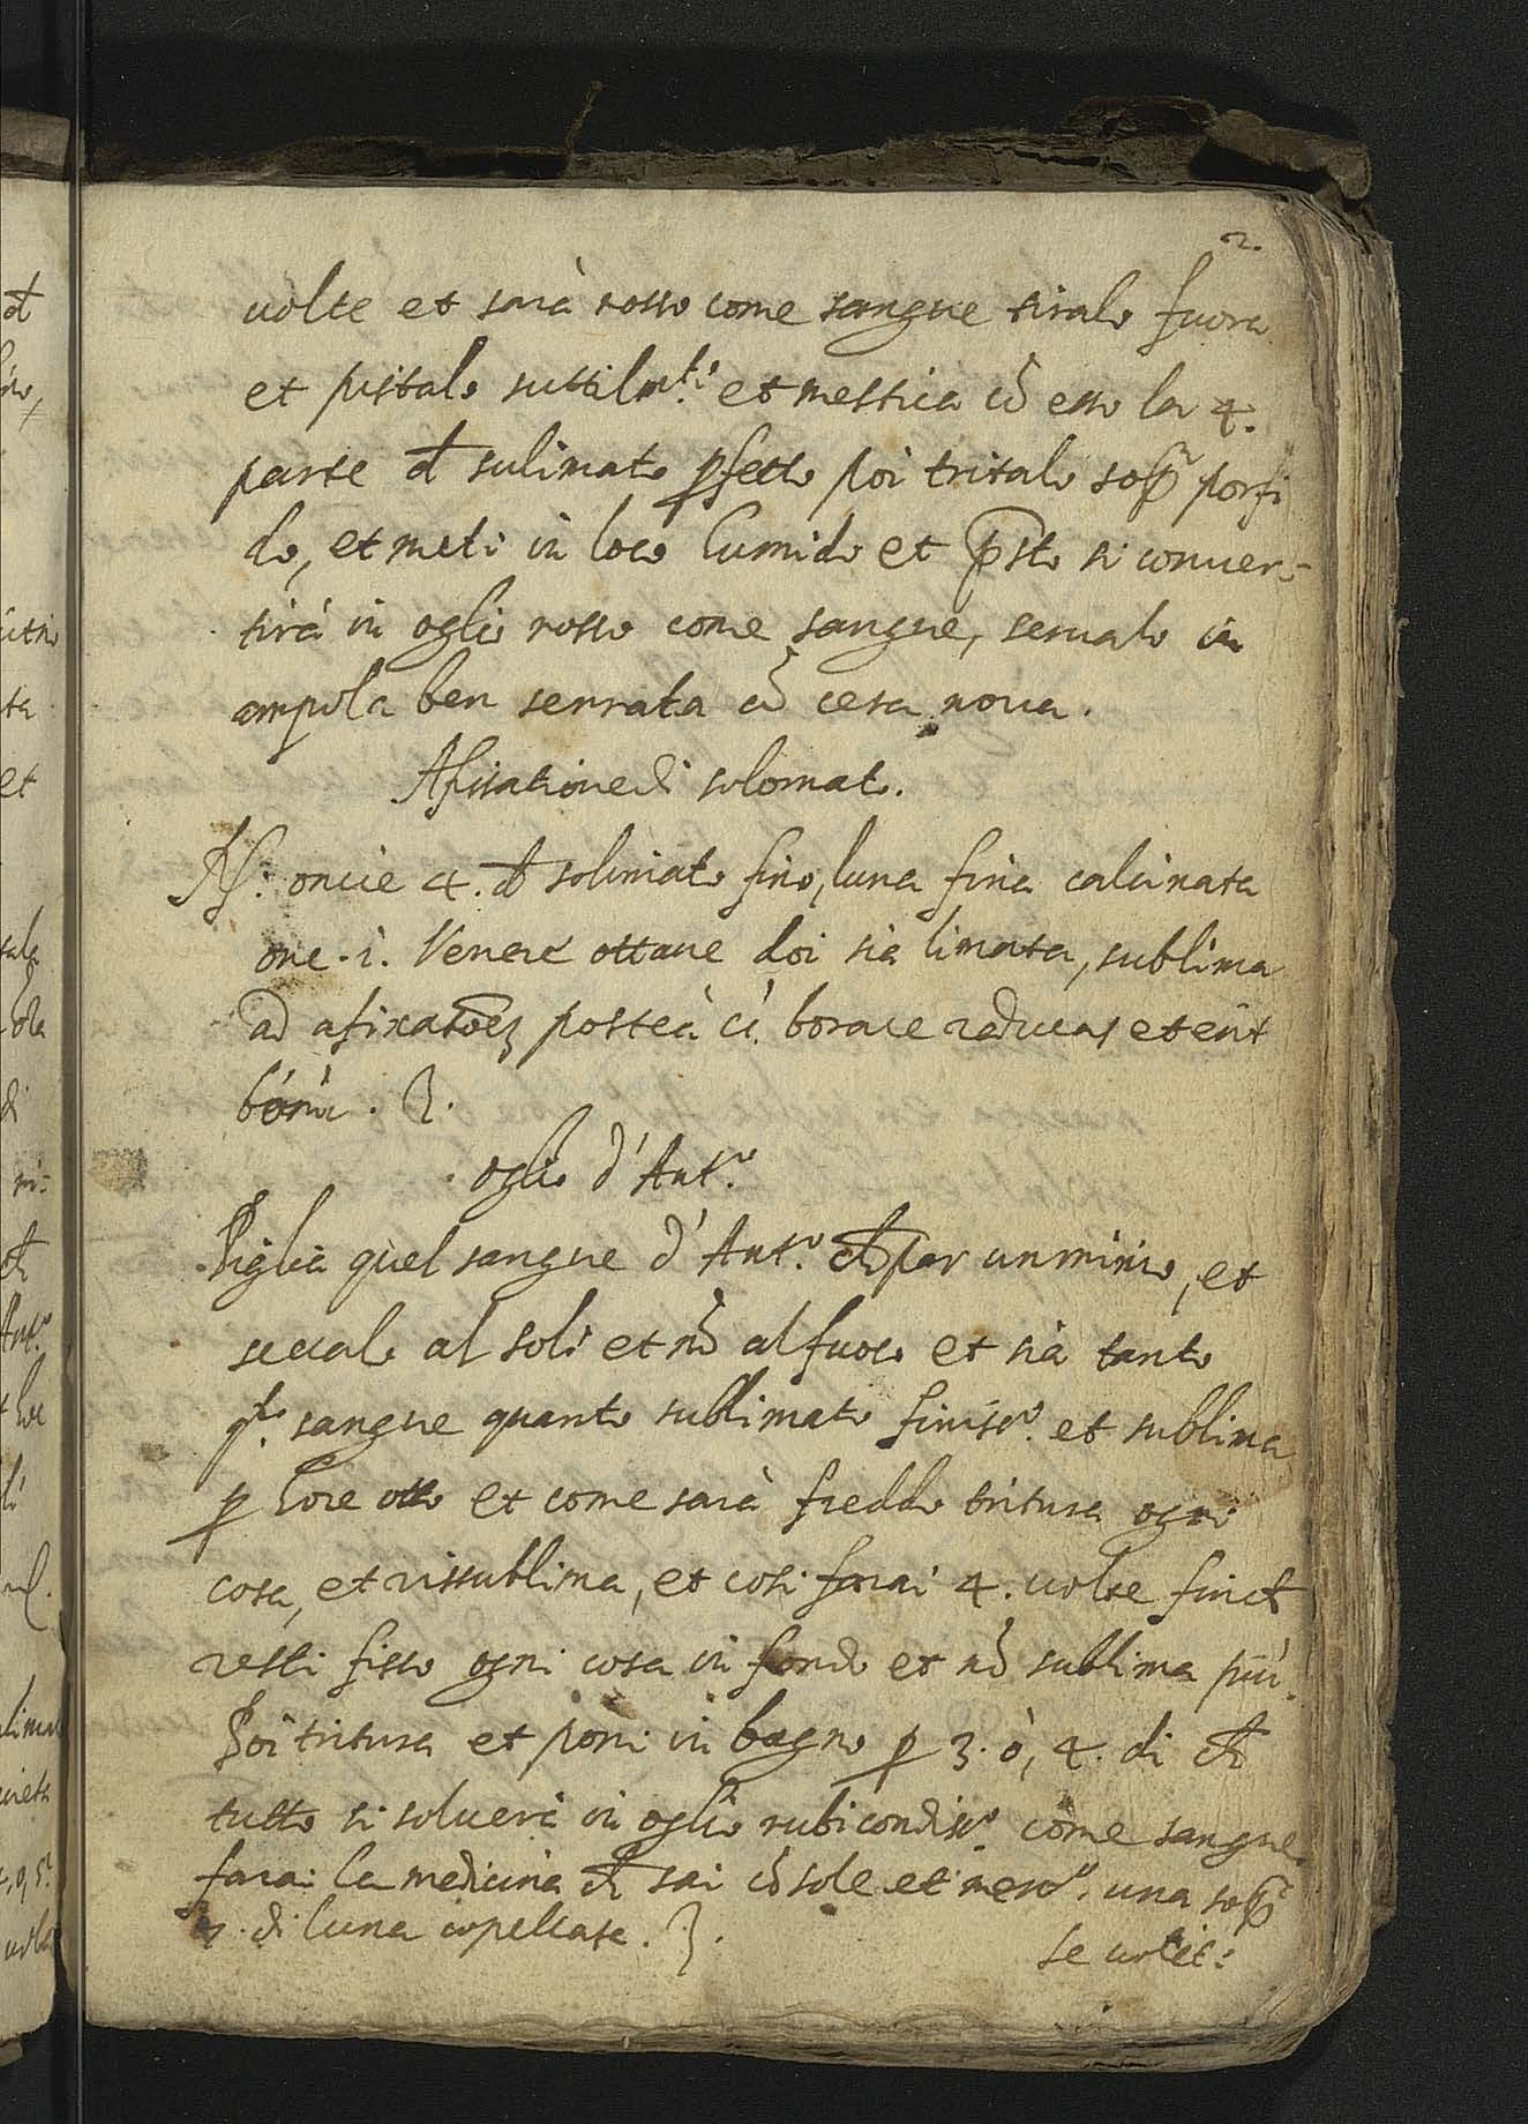 2.
uolte et sarà rosso come sangue tiralo fuora
et pistalo suttilm.te et mestica cõ esso la 4.
parte đ sulimato ꝑfetto poi tritalo sop̃ porfi
do, et meti in loco humido et p̃sto si conuer-
tirà in oglio rosso come sangue, serualo in
ampola ben serrata cõ cera noua.
Afisatione di solomato.
oncie 4. đ solimato fino, luna fina calcinata
onc. i. Venere ottaue doi sia limata, sublima
ad afixatõez posteà cũ borace reducas et erit
bona.
oglio d'Ant.o
Piglia quel sangue d'Ant.o cħ par un minio, et
seccalo al sole et nõ al fuoco et sia tanto
q.to sangue quanto sublimato finiss.o et sublima
ꝑ hore otto et come sarà freddo tritura ogni
cosa, et rissublima, et cosi farai 4. uolte fin cħ
resti fisso ogni cosa in fondo et nõ sublima più.
Poi tritura et poni in bagno ꝑ 3. ò, 4. di cħ
tutto si soluerà in oglio rubicondiss.o come sangue
farai la medicina cħ sai cõ sole et merc.o una sop̃
di luna copellata.
se uolet: